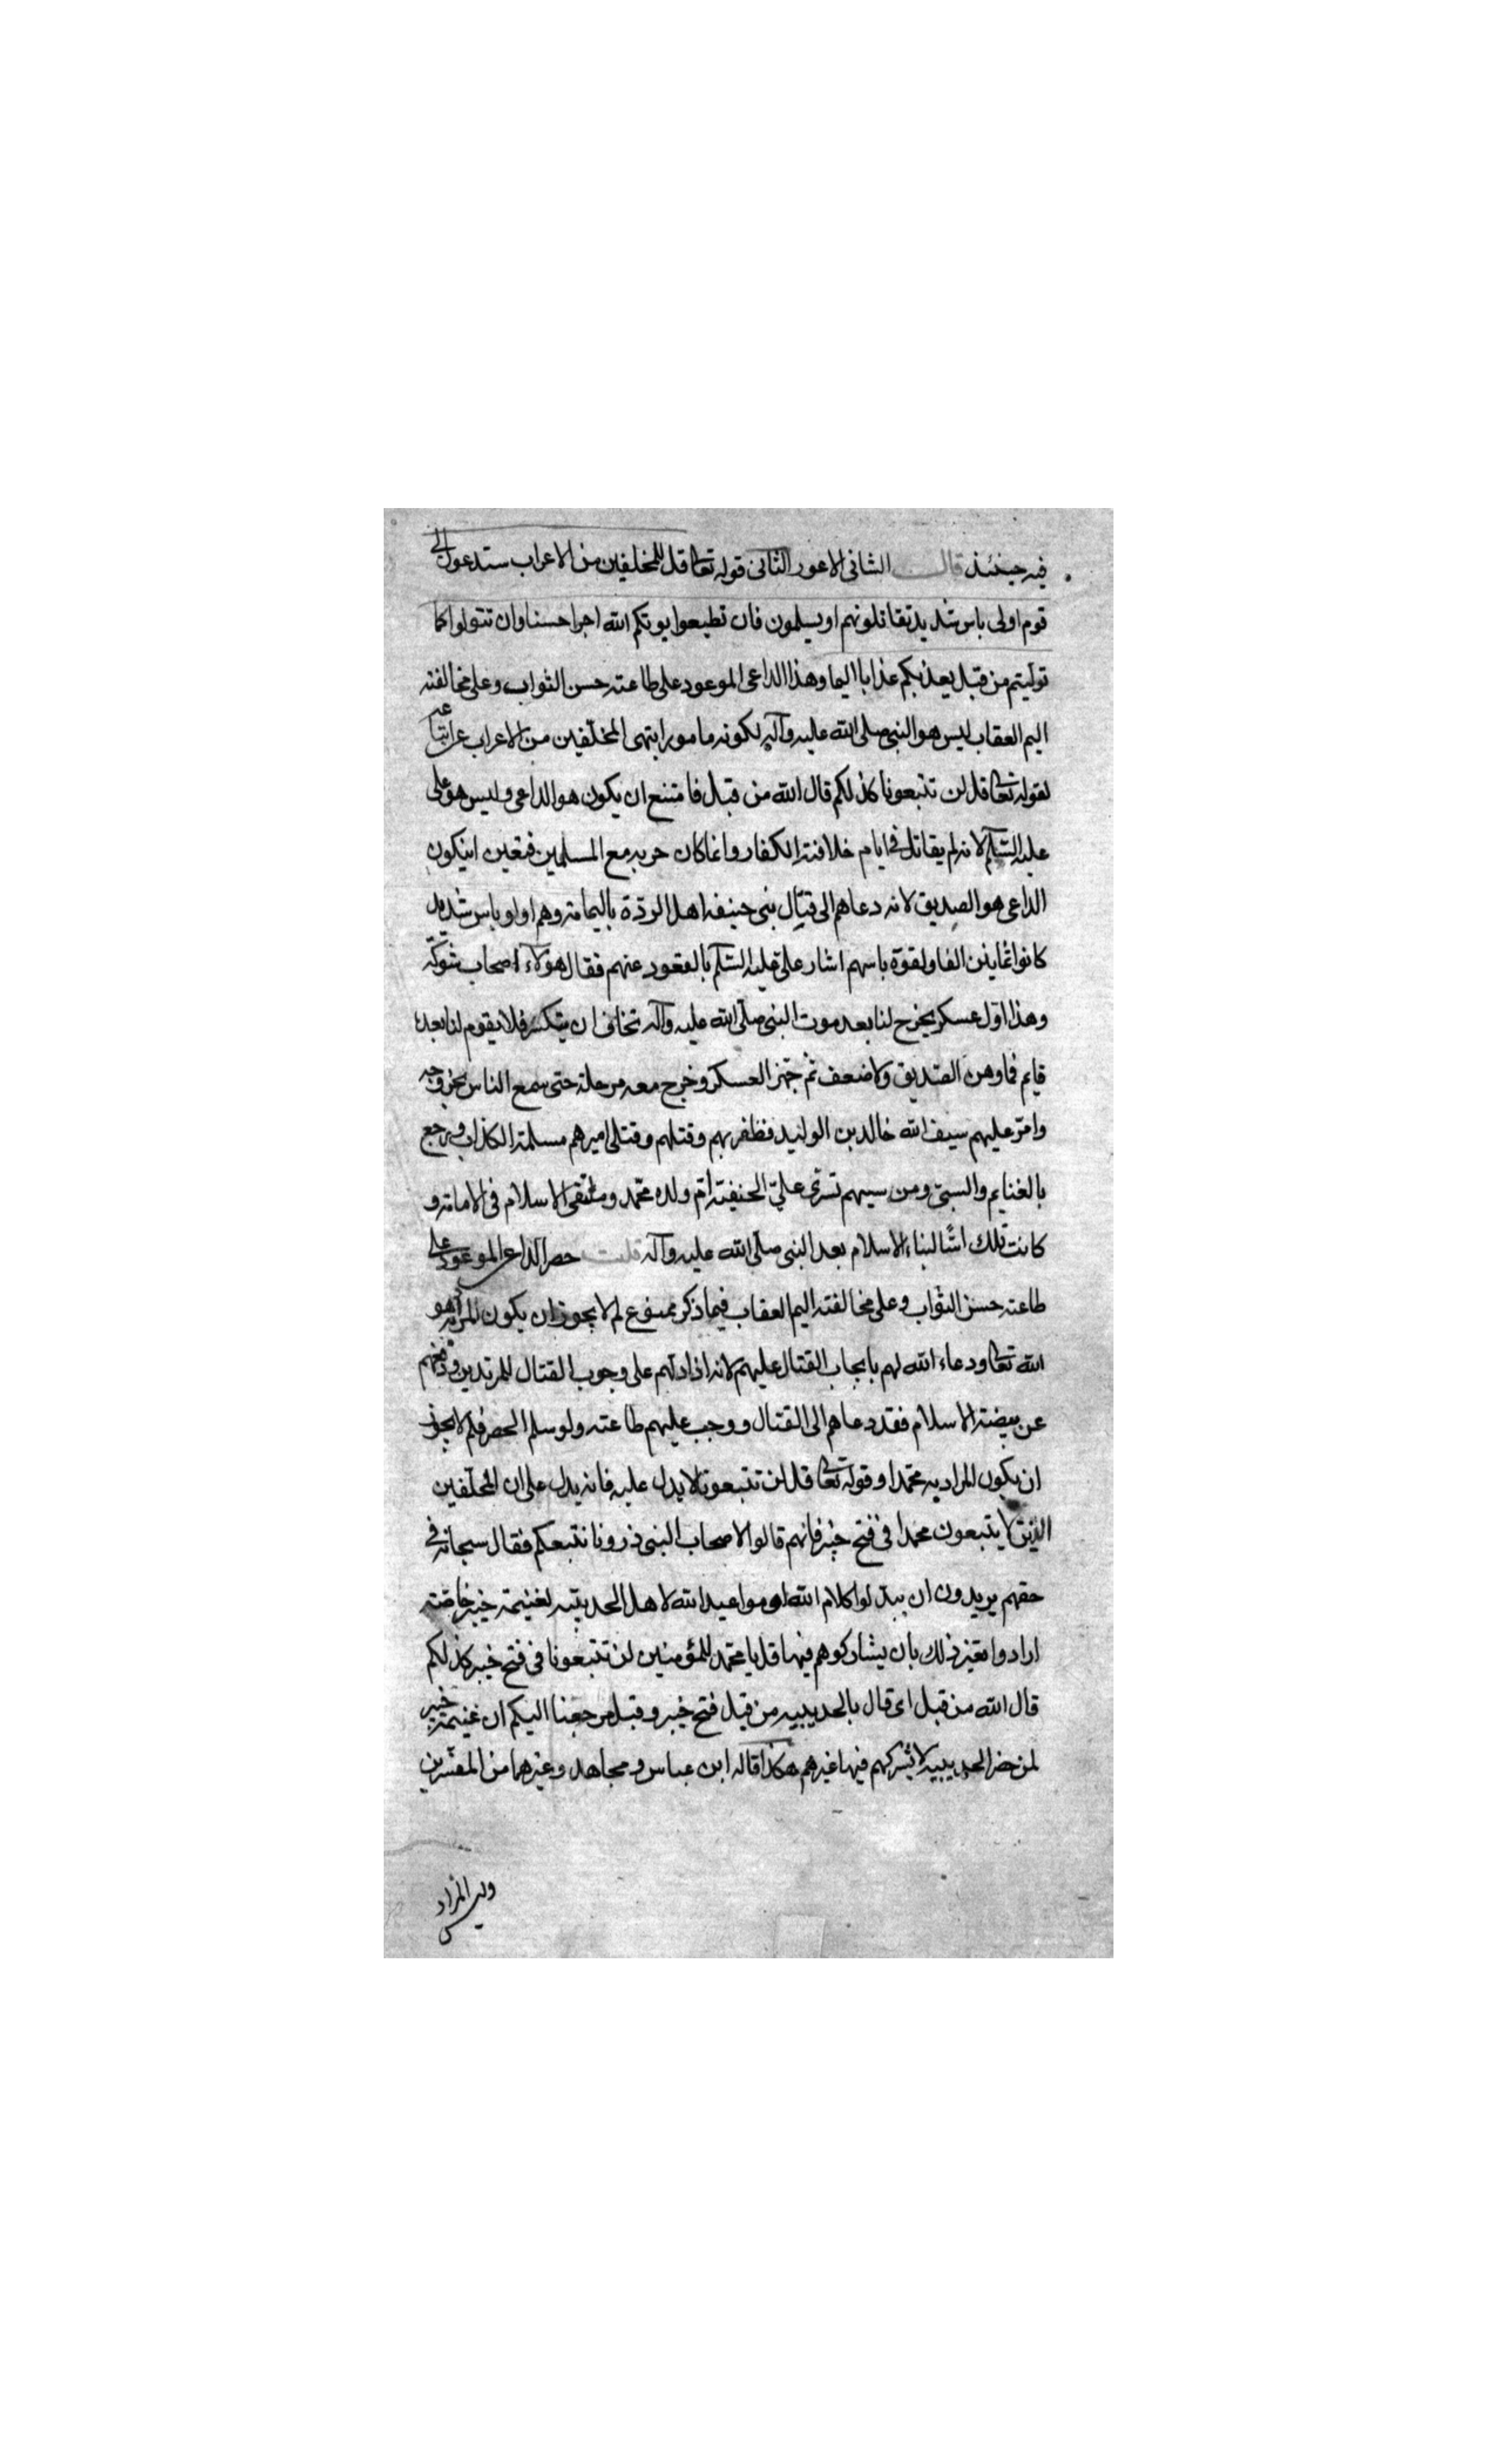 فيه حينئذ قال الشانى الاعور الثانى قوله تعالى قل للمخلفين من الاعراب ستدعون الى
قوم اولى باس شديد تقاتلونهم او يسلمون فان تطيعوا يوتكم الله اجرا حسنا وان تتولوا كما
توليتم من قبل يعذبكم عذابا اليما وهذا الداعى الموعود على طاعته حسن الثواب وعلى مخالفته
اليم العقاب ليس هو النبى صلى الله عليه وآله لكونه مامورا بنهى المخلّفين من الاعراب عن اتباعه
لقوله تعالى قل لن تتبعونا كذلكم قال الله من قبل فامتنع ان يكون هو الداعى وليس هو على
عليه السّلم لانه لم يقاتل فى ايام خلافته الكفار وانما كان حربه مع المسلمين فتعين ان يكون
الداعى هو الصديق لانه دعاهم الى قتال بنى حنيفه اهل الردّة باليمامة وهم اولو باس شديد
كانوا ثمانين الفا ولقوّة باسهم اشار على عليه السّلم بالقعود عنهم فقال هولاء اصحاب شوكة
وهذا اوّل عسكر يخرج لنا بعد موت النبى صلّى الله عليه وآله نخاف ان ينكسر فلا يقوم لنا بعده
قايم فما وهن الصّديق ولا ضعف ثم جهّز العسكر وخرج معه مرحلة حتى سمع الناس بخروجه
وامّر عليهم سيف الله خالد بن الوليد فظفر بهم وقتلهم وقتل اميرهم مسلمة الكذاب ورجع
بالغنايم والسبى ومن سبيهم تسرّى علىّ الحنيفة امّ ولده محمّد الاسلام فى الامامة و
كانت تلك اسّا لبناء الاسلام بعد النبى صلّى الله عليه وآله قلت حصر الداعى الموعود على
طاعته حسن الثواب وعلى مخالفته اليم العقاب فيما ذكر ممنوع لم لا يجوز ان يكون المراد هو
الله تعالى ودعاء الله لهم بايجاب القتال عليهم لانه اذا دلهم على وجوب القتال للمرتدين ودفعهم
عن بيضة الاسلام فقد دعاهم الى القتال ووجب عليهم طاعته ولو سلم الحصر فلم لا يجوز
ان يكون المراد به محمّدا وقوله تعالى قل لن تتبعونا لا يدل عليه فانه يدل على ان المخلّفين
الذين لا يتبعون محمدا فى فتح خيبر فانهم قالوا لاصحاب النبى ذرونا نتبعكم فقال سبحانه فى
حقهم يريدون ان يبدّلوا كلام الله اى مواعيد الله لاهل الحديبيّه بغنيمة خيبر خاصّة
ارادوا تغيير ذلك بان يشاركوهم فيها قل يا محمّد للمؤمنين لن تتبعونا فى فتح خيبر كذلكم
قال الله من قبل اى قال بالحديبيه من قبل فتح خيبر وقبل مرجعنا اليكم ان غنيمة خيبر
لمن حضر الحديبيه لا يشركهم فيها غيرهم هكذا قاله ابن عباس ومجاهد وغيرهما من المفسّرين
وليس المراد